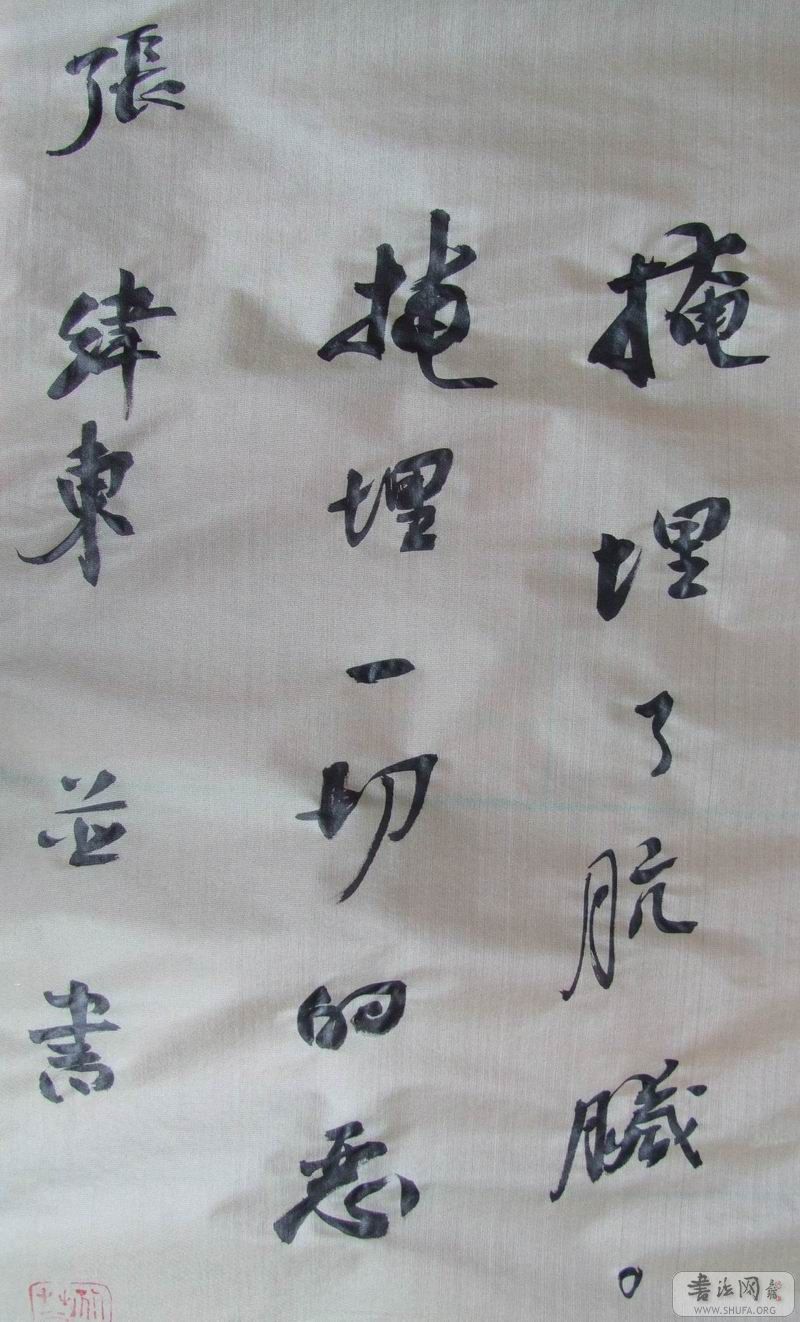 掩埋了肮臟。
掩埋一切的恶
張緯東 並書
書法网
WWW.SHUFA.ORG